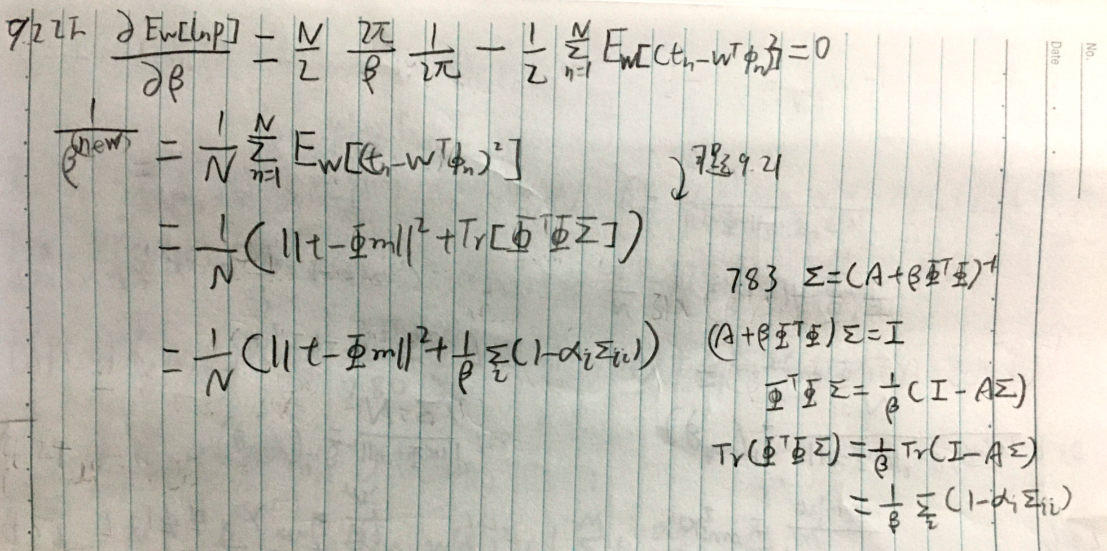 9.22下 ∂Ew[lnp]/∂β = N/2 2π/β 1/2π − 1/2 Σ_{n=1}^{N} Ew[(tn−wᵀϕn)²] = 0
1/β^(new) = 1/N Σ_{n=1}^{N} Ew[(tn−wᵀϕn)²]
9.21
= 1/N (||t−Φm||² + Tr[ΦᵀΦΣ])
= 1/N (||t−Φm||² + 1/β Σ_i (1−αiΣii))
7.83 Σ=(A+βΦᵀΦ)⁻¹
(A+βΦᵀΦ)Σ=I
ΦᵀΦΣ = 1/β (I−AΣ)
Tr(ΦᵀΦΣ) = 1/β Tr(I−AΣ)
= 1/β Σ_i (1−αiΣii)
No.
Date